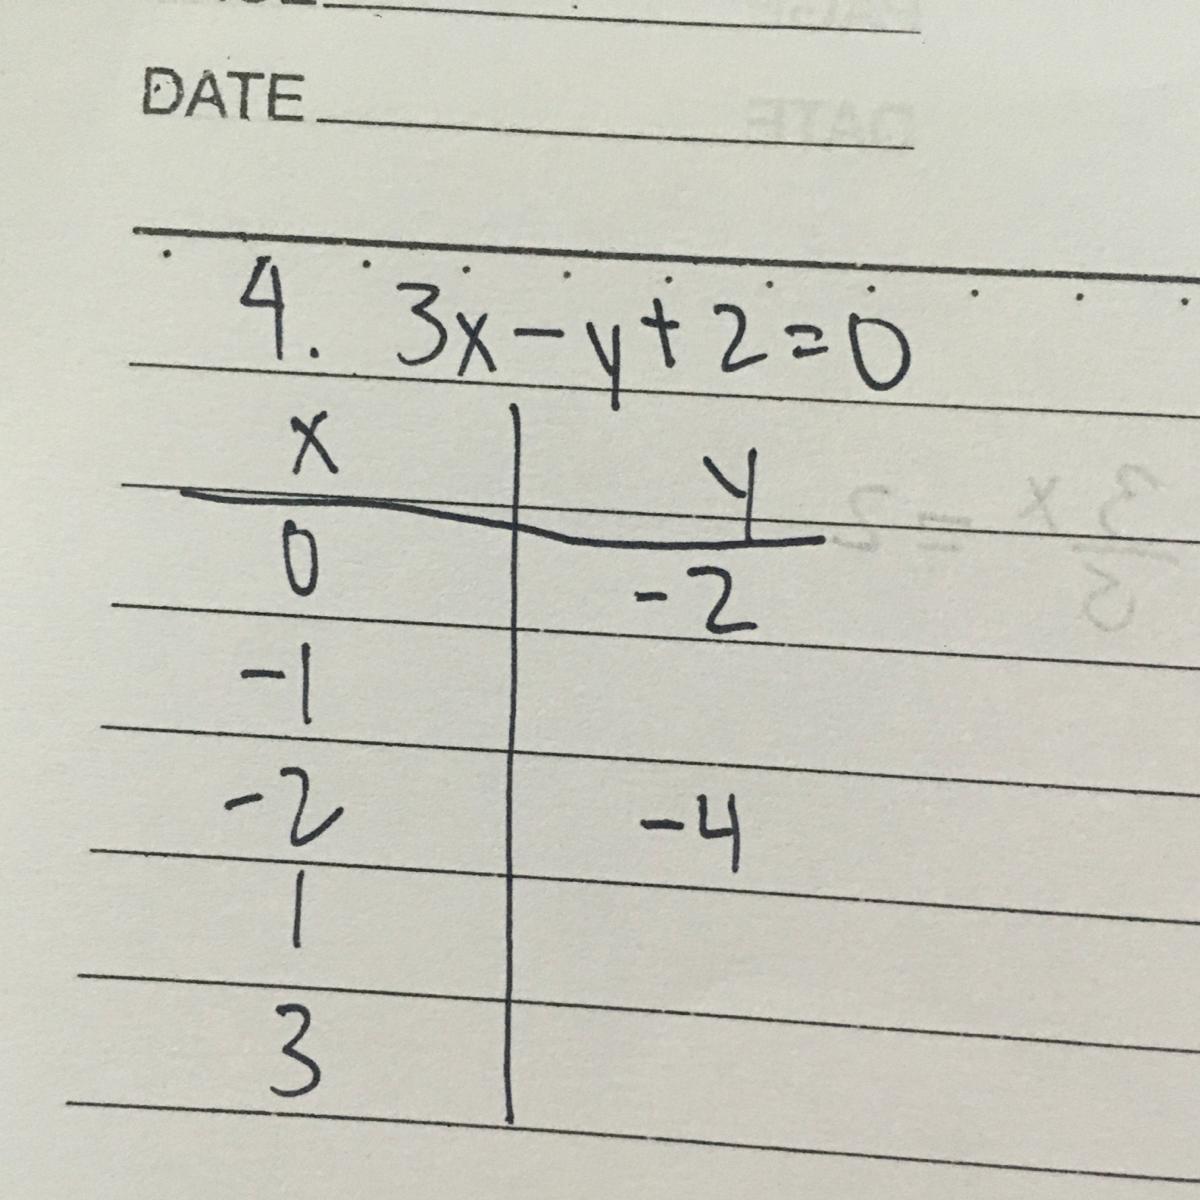 DATE
4. 3x-y+2=0
x y
0 -2
-1
-2 -4
1
3